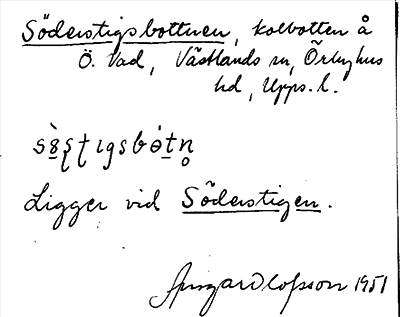 Söderstigsbottnen, kolbotten å
Ö. Vad, Västlands sn, Örbyhus
hd, Upps. l.
Ligger vid Söderstigen.
Ingvar Olofsson 1951